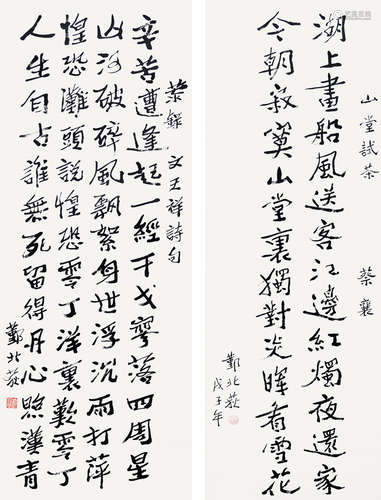 山堂試茶 蔡襄
湖上畫船風送客江邊紅燭夜還家
今朝寂寞山堂裏獨對炎暉看雪花
戊子年
恭錄文天祥詩句
辛苦遭逢起一經干戈寥落四周星
山河破碎風飄絮身世浮沉雨打萍
惶恐灘頭說惶恐零丁洋裏歎零丁
人生自古誰無死留得丹心照漢青